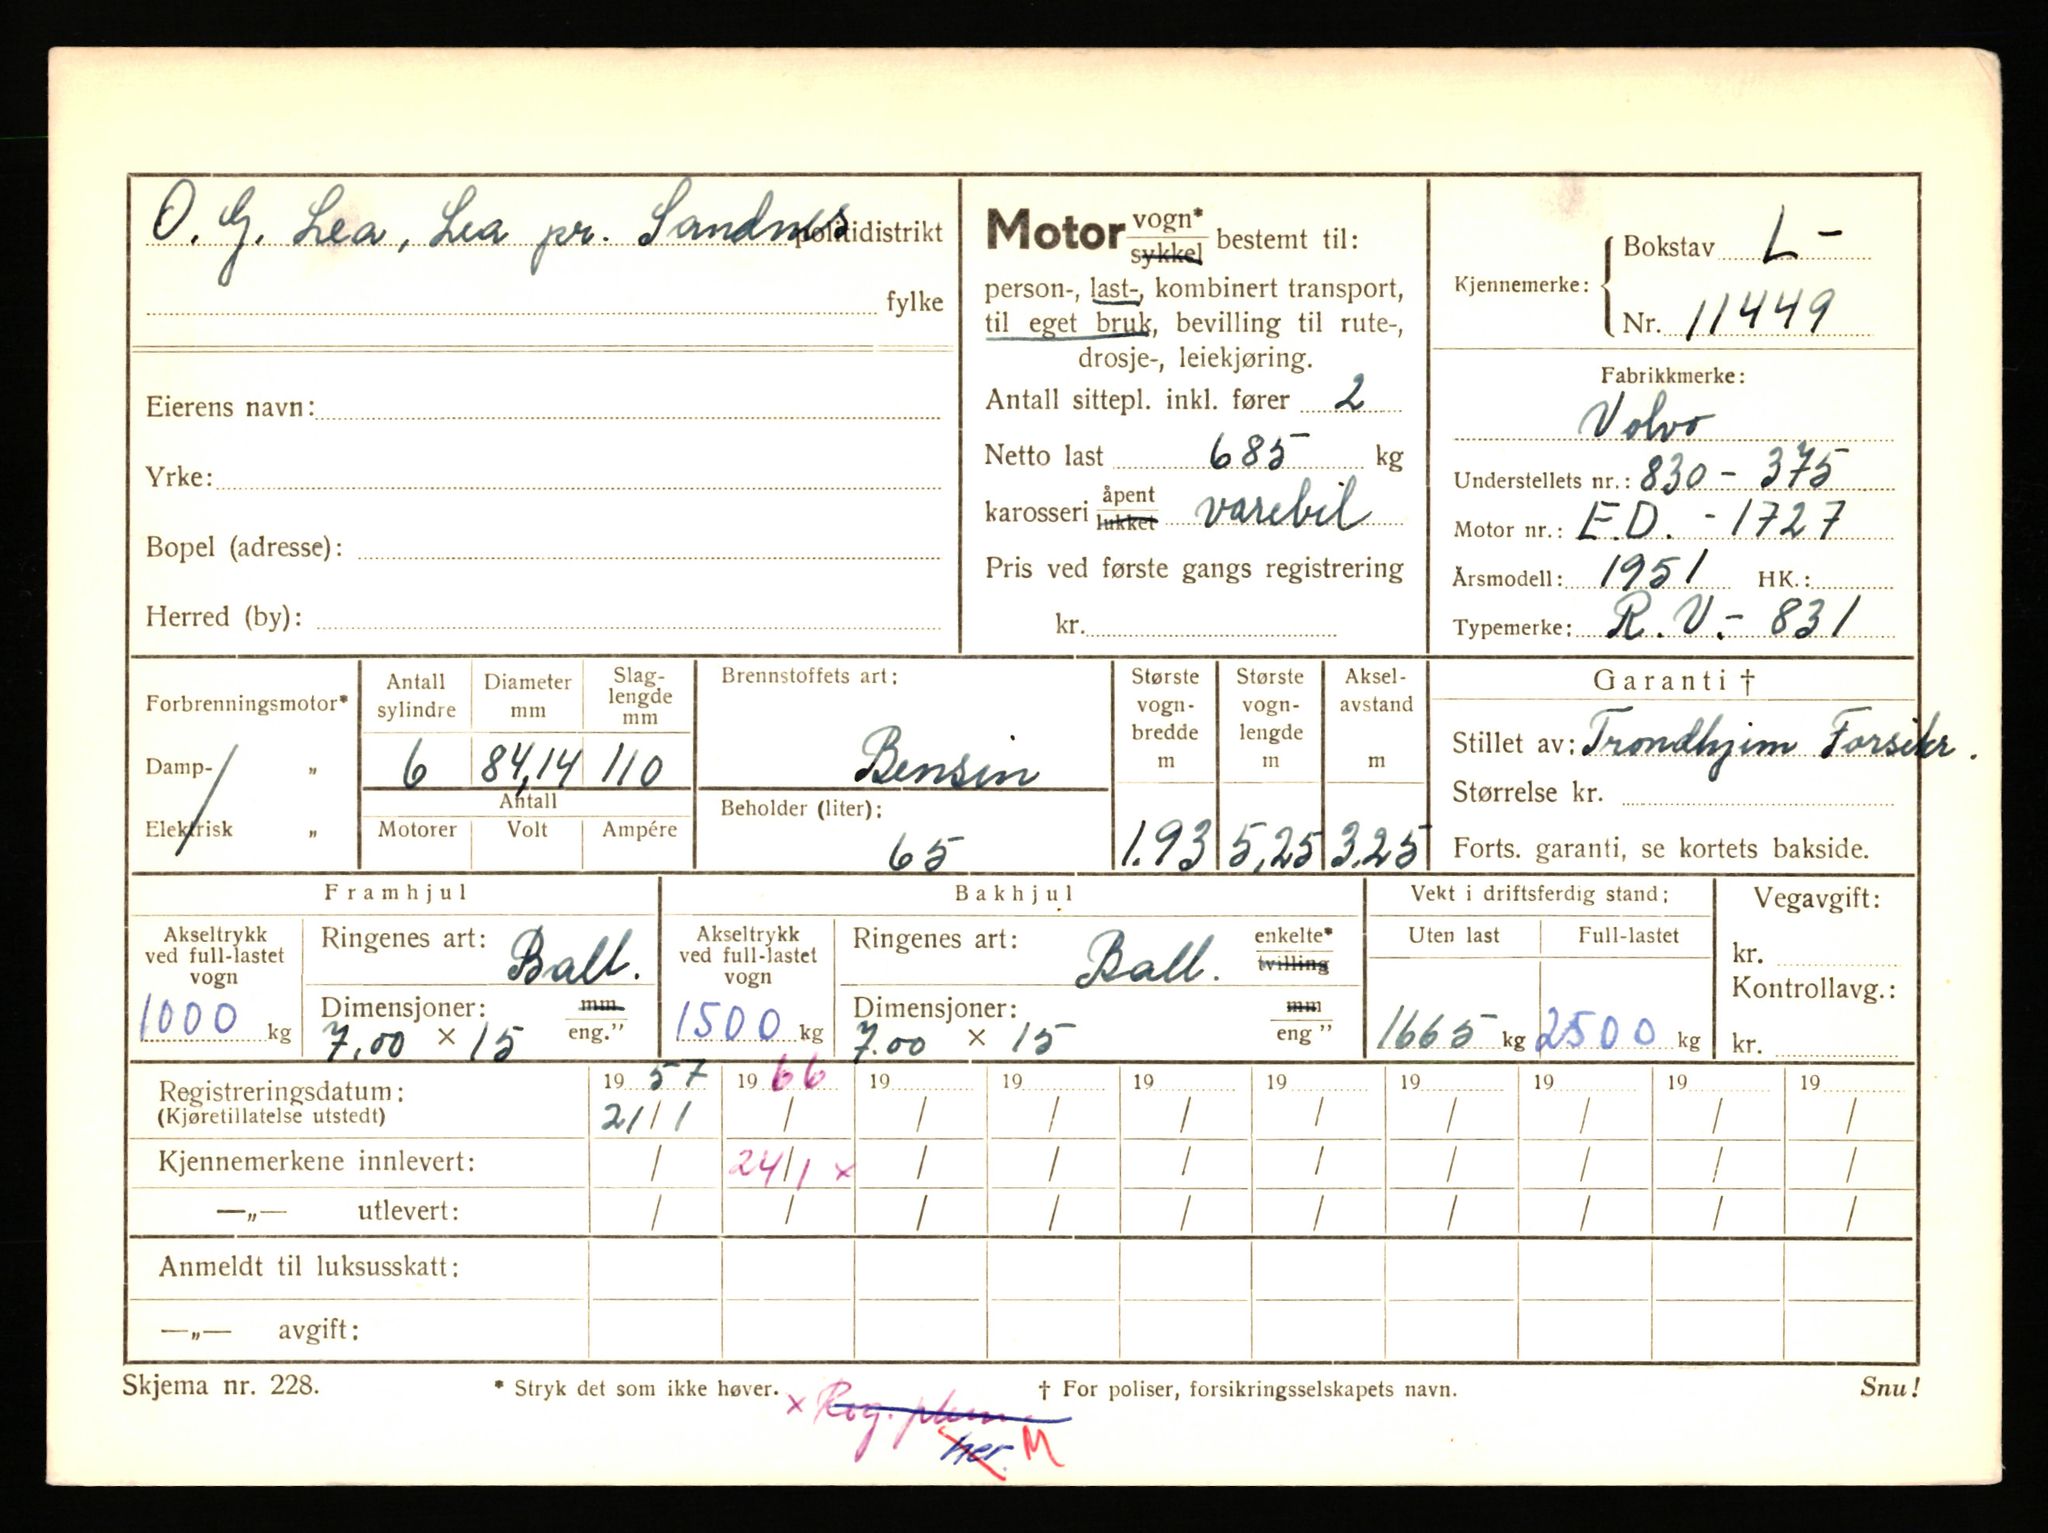 O. G. Lea, Lea pr. Sandnes politidistrikt
fylke
Eierens navn:
Yrke:
Bopel (adresse):
Herred (by):
Motor vogn* sykkel bestemt til:
person-, last-, kombinert transport,
til eget bruk, bevilling til rute-,
drosje-, leiekjøring.
Antall sittepl. inkl. fører 2
Netto last 685 kg
karosseri åpent lukket varebil
Pris ved første gangs registrering
kr.
Kjennemerke: Bokstav L-
Nr. 11449
Fabrikkmerke:
Volvo
Understellets nr.: 830 - 375
Motor nr.: E.D. - 1727
Årsmodell: 1951 HK.:
Typemerke: R.V.- 831
Forbrenningsmotor*
Damp- „
Elektrisk „
Antall sylindre
6
Diameter mm
84,14
Slag-lengde mm
110
Antall
Motorer Volt Ampére
Brennstoffets art:
Bensin
Beholder (liter):
65
Største vogn-bredde m
1.93
Største vogn-lengde m
5,25
Aksel-avstand m
3,25
Garanti †
Stillet av: Trondhjem Forsikr.
Størrelse kr.
Forts. garanti, se kortets bakside.
Framhjul
Akseltrykk ved full-lastet vogn
1000 kg
Ringenes art: Ball.
Dimensjoner: mm
7,00 × 15 eng."
Bakhjul
Akseltrykk ved full-lastet vogn
1500 kg
Ringenes art: Ball. enkelte* tvilling
Dimensjoner: mm
7.00 × 15 eng "
Vekt i driftsferdig stand:
Uten last Full-lastet
1665 kg 2500 kg
Vegavgift:
kr.
Kontrollavg.:
kr.
Registreringsdatum: 19 57 19 66 19 19 19 19 19 19 19 19
(Kjøretillatelse utstedt) 21/1 / / / / / / / / /
Kjennemerkene innlevert: / 24/1 x / / / / / / / /
—„— utlevert: / / / / / / / / / /
Anmeldt til luksusskatt:
—„— avgift:
Skjema nr. 228. * Stryk det som ikke høver. † For poliser, forsikringsselskapets navn. Snu!
x Reg.
her. M